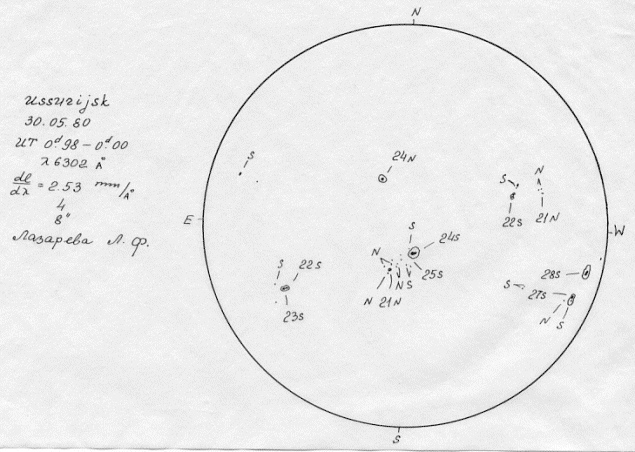 Ussurijsk
30.05.80
UT 0ᵈ98 – 0ᵈ.00
λ 6302 Å
dl/dλ = 2.53 mm/Å
4
8"
Лазарева Л. Ф.
N
S
24N
N
S
E
22S
21N
W
S
24S
S
22S
N
25S
28S
N S
S
27S
N 21N
23S
N
S
S